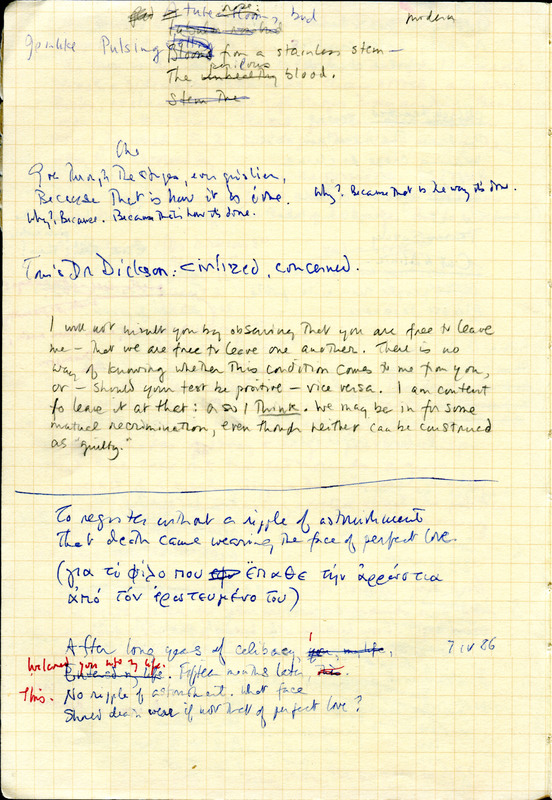 tube rose, bud modern
Pulsing from a stainless stem —
The perilous unhealthy blood.
Stem The
Go through the stages, ever
Because that is how it is done. Why? Because that is the way it's done.
Why? Because. Because that's how it's done.
Dr Dickson: civilized, concerned.
I will not insult you by observing that you are free to leave
me — that we are free to leave one another. There is no
way of knowing whether this condition comes to me from you,
or — should your test be positive — vice versa. I am content
to leave it at that: or so I think. We may be in for some
mutual recrimination, even though neither can be construed
as "guilty."
To register without a ripple of astonishment
That death came wearing the face of perfect love.
(για τὸ φίλο που ἔπαθε τὴν ἀρρώστια
ἀπό τόν ἐρωτευμένο του)
After long years of celibacy, I you, my life, 7 IV 86
welcomed you into my life.
Entered my life. Fifteen months later, this.
This. No ripple of astonishment. What face
Should death wear if not that of perfect love?